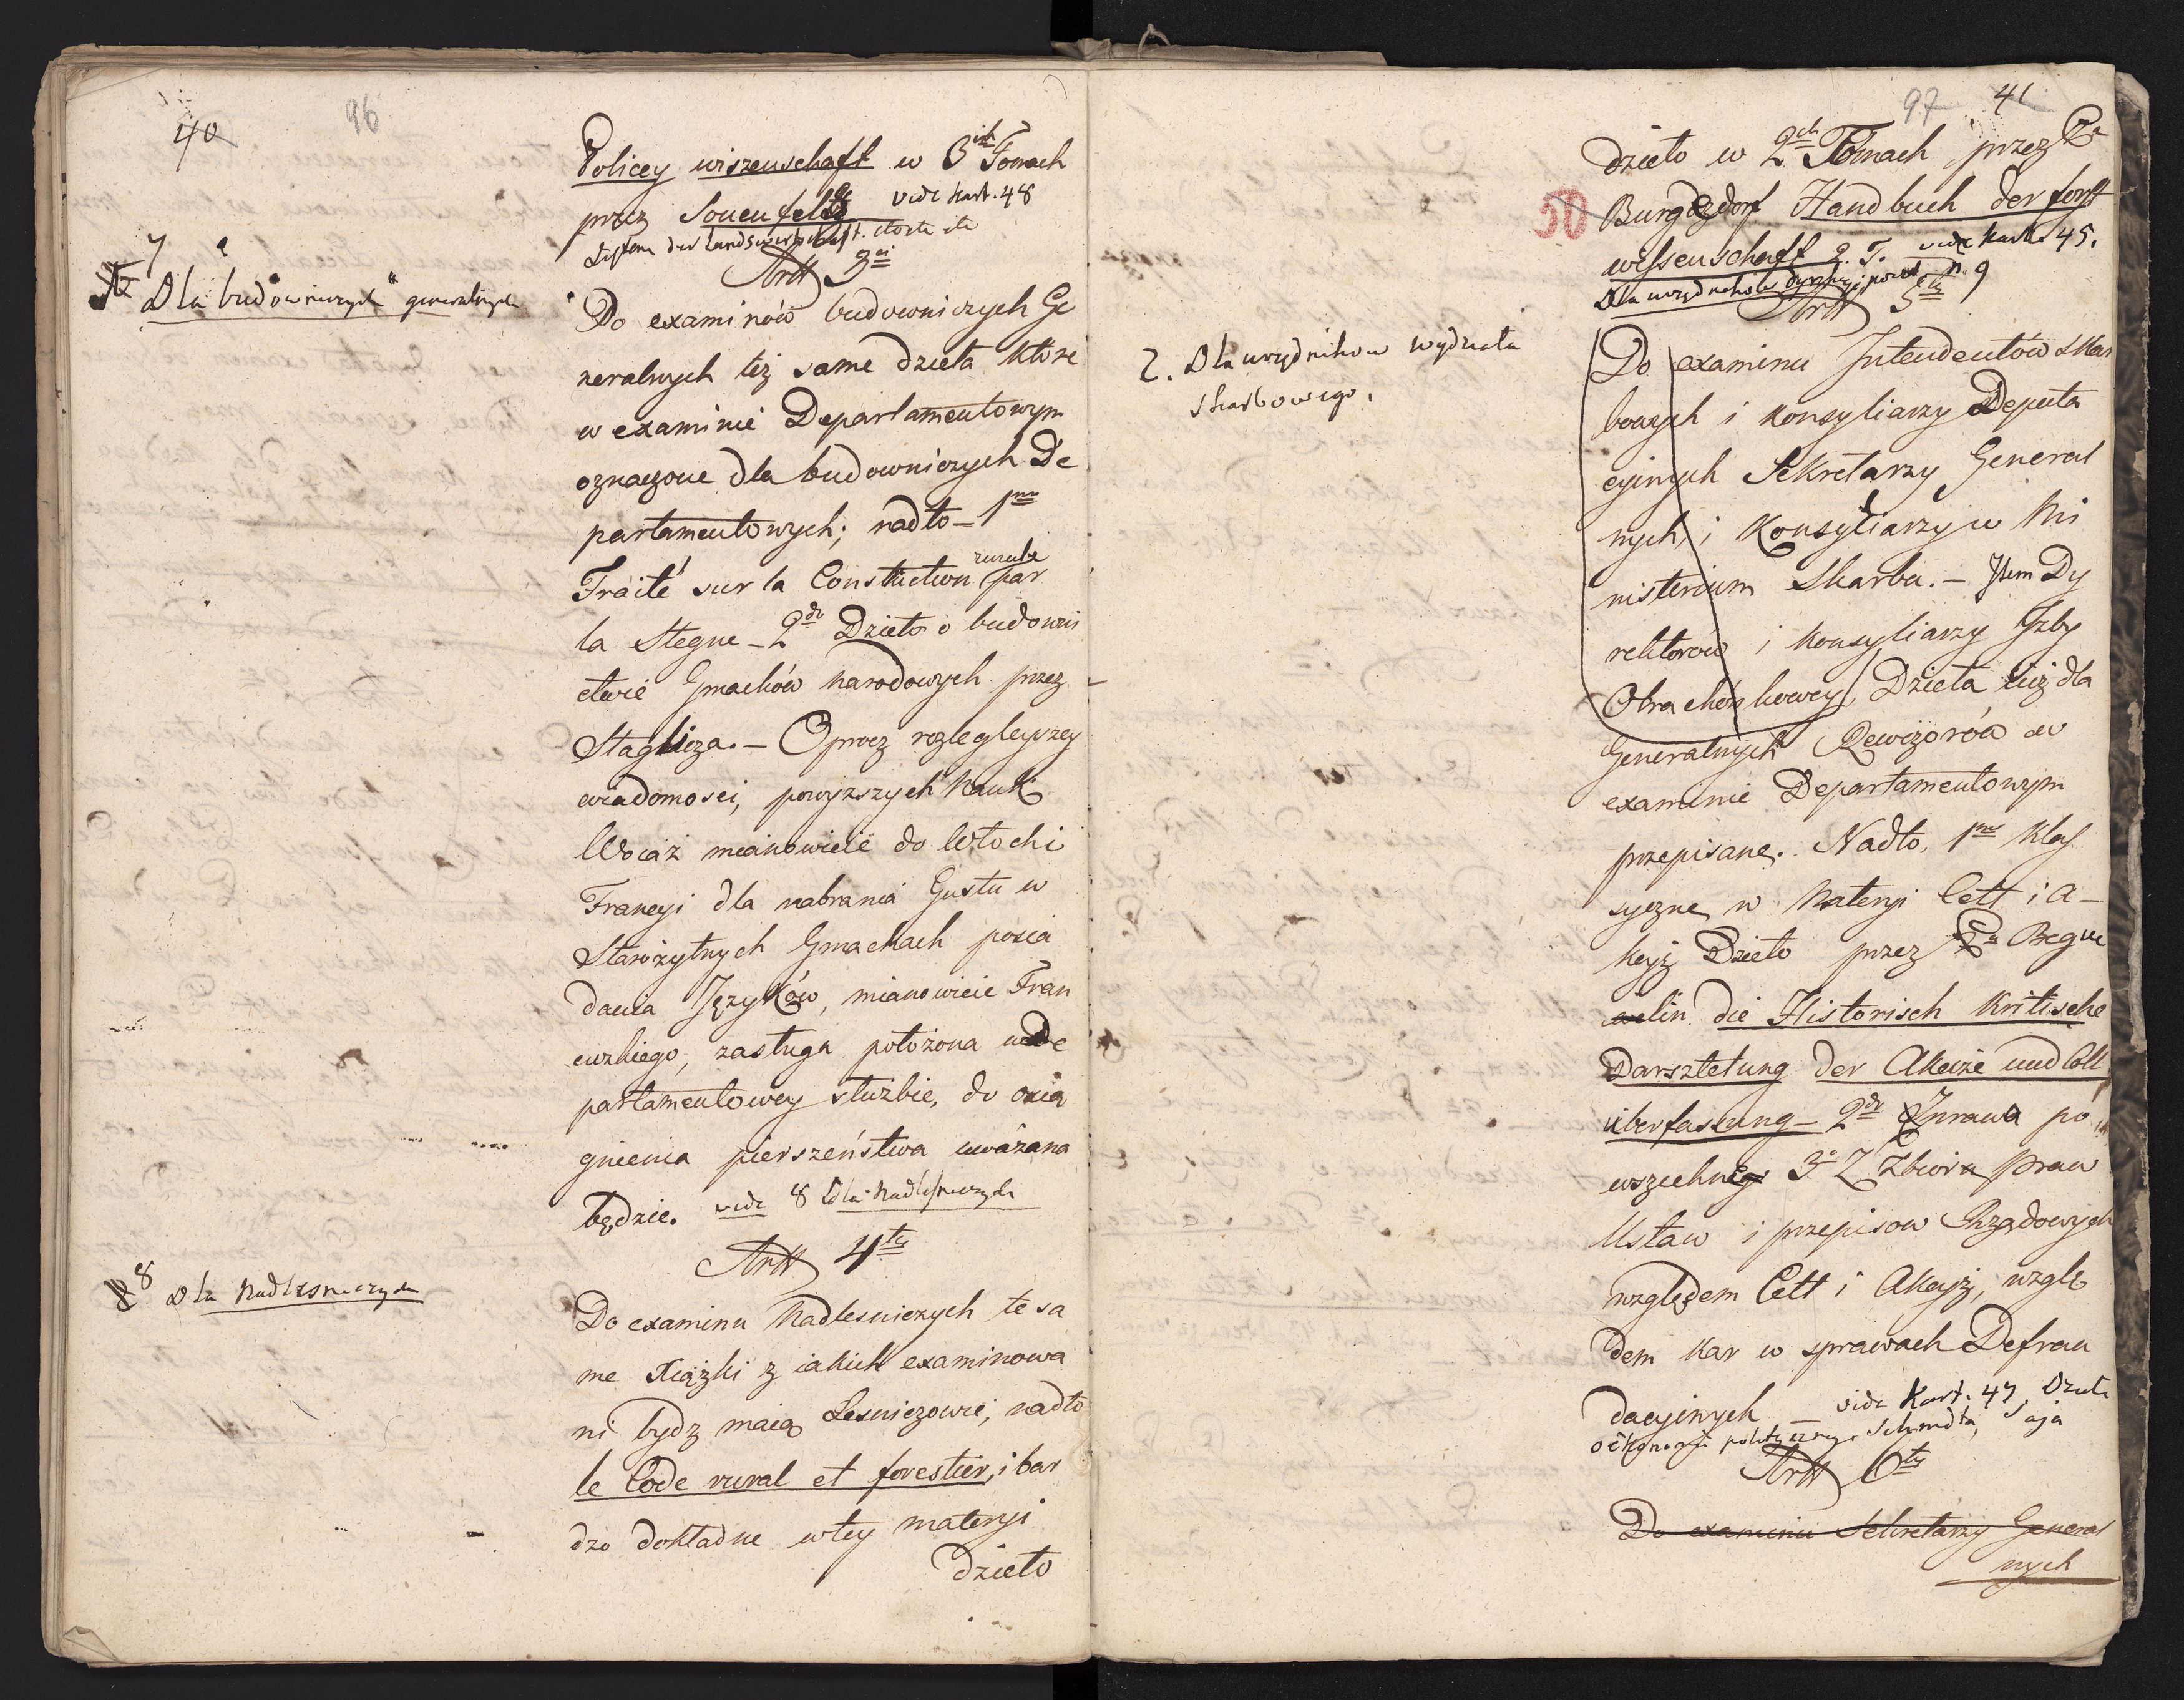 40
96
Policey wiszenschaft w 3ch Tomach
przez Sonenfelsa vide Kart. 48
System der Landswirthschaft
Artt 3ci
7
Dla budowniczych generalnych
Do examinów budowniczych Ge
neralnych też same dzieła które
w examinie Departamentowym
oznaczone dla budowniczych De
partamentowych; nadto – 1mo
Traité sur la Constuction rurale par
la Stegne – 2do Dzieło o budowni
ctwie Gmachów narodowych przez
Stagliza. – Oprocz rozlegleyszey
wiadomosci, powyzszych Nauk
Woiaż mianowicie do Włoch i
Francyi dla nabrania Gustu w
Starożytnych Gmachach posia
dania Języków, mianowicie Fran
cuzkiego, zasługa położona w De
partamentowey służbie, do osią
gnienia pierszeństwa uważana
będzie. vide 8 dla Nadleśniczych
Artt 4ty
8 Dla Nadlesniczych
Do examinu Nadlesniczych te sa
me Xiążki z iakich examinowa
ni bydz maią Lesniczowie, nadto
le Code rural et forestier, i bar
dzo dokładne w tey materyi
dzieło
97
41
dzieło w 2ch Tomach, przez Pa
50
Burgdzdorf Handbuch der forst
wissenschaft 2. T. vide Kart. 45.
Dla urzędników dyrekcyi poczt n. 9
Artt 5ty
2. Dla urzędnikow wydziału
skarbowego.
Do examinu Intendentów Skar
bowych i Konsyliarzy Deputa
cyinych Sekretarzy General
nych, i Konsyliarzy w Mi
nisterium Skarbu. – Item Dy
rektorow i Konsyliarzy Izby
Obrachónkowey, Dzieła też dla
Generalnych Rewizorów w
examinie Departamentowym
przepisane. Nadto, 1mo Klas
syczne w Materyi Cełł i A–
kcyz Dzieło przez Pa Begue
welin die Historisch Kritische
Darsztelung der Akcize und Coll
überfassung – 2do Prawa po
wszechnego 3o Z Zbioru praw
Ustaw i przepisow Rządowych
względem Cełł i Akcyz, wzglę
dem Kar w sprawach Defrau
dacyinych – vide Kart. 47, Dzieła
oekonomii politycznej Schmidta, Saja
Artt 6ty
Do examinu Sekretarzy General
nych